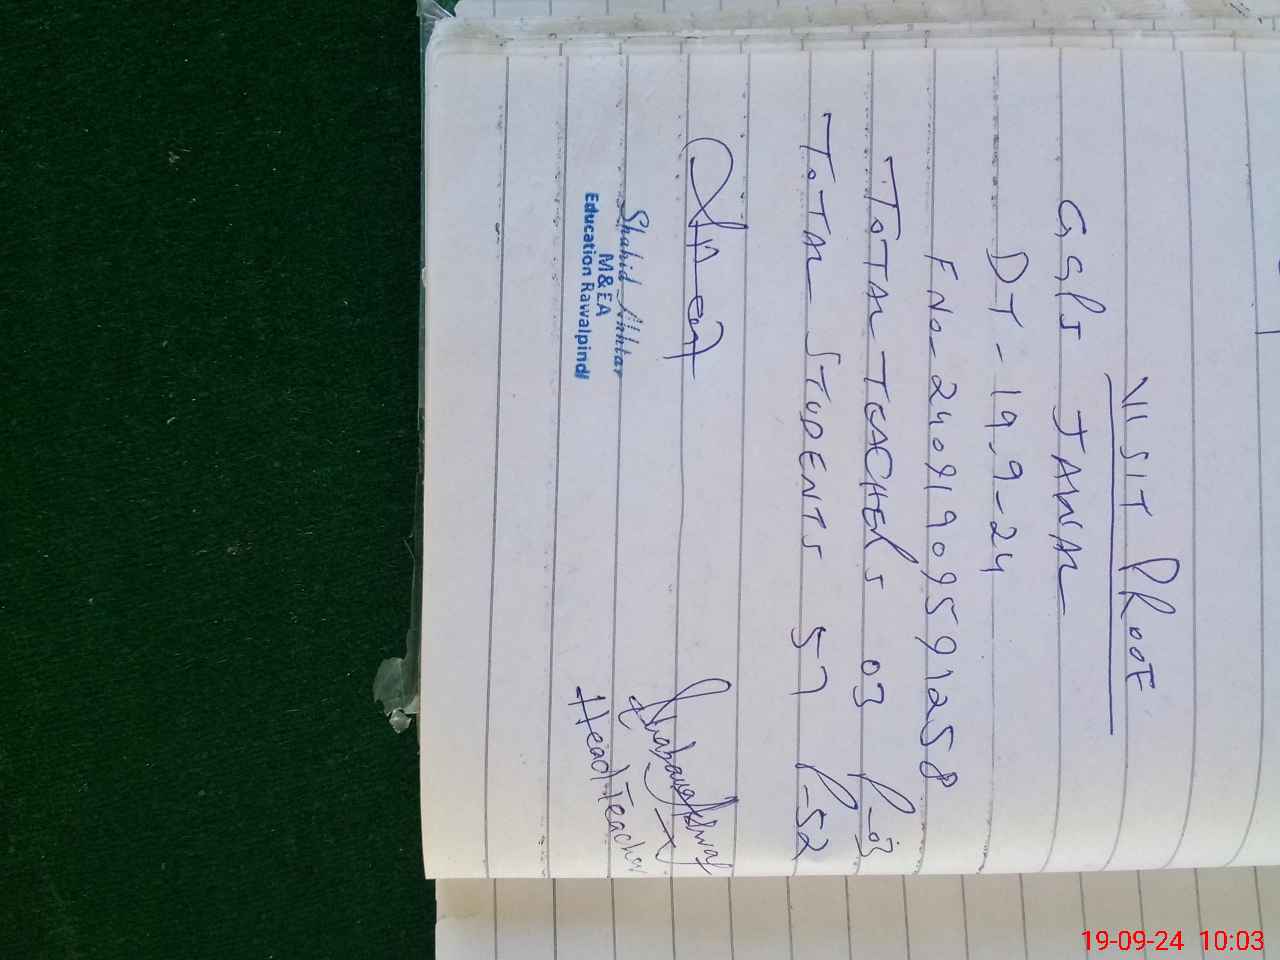 VISIT PROOF
GGPS JAWA
DT - 19.9-24
F No- 24091909591258
TOTAL TEACHERS 03 P-03
TOTAL STUDENTS 57 P-52
Shahid Akhtar
M&EA
Education Rawalpindi
Head Teacher
19-09-24 10:03